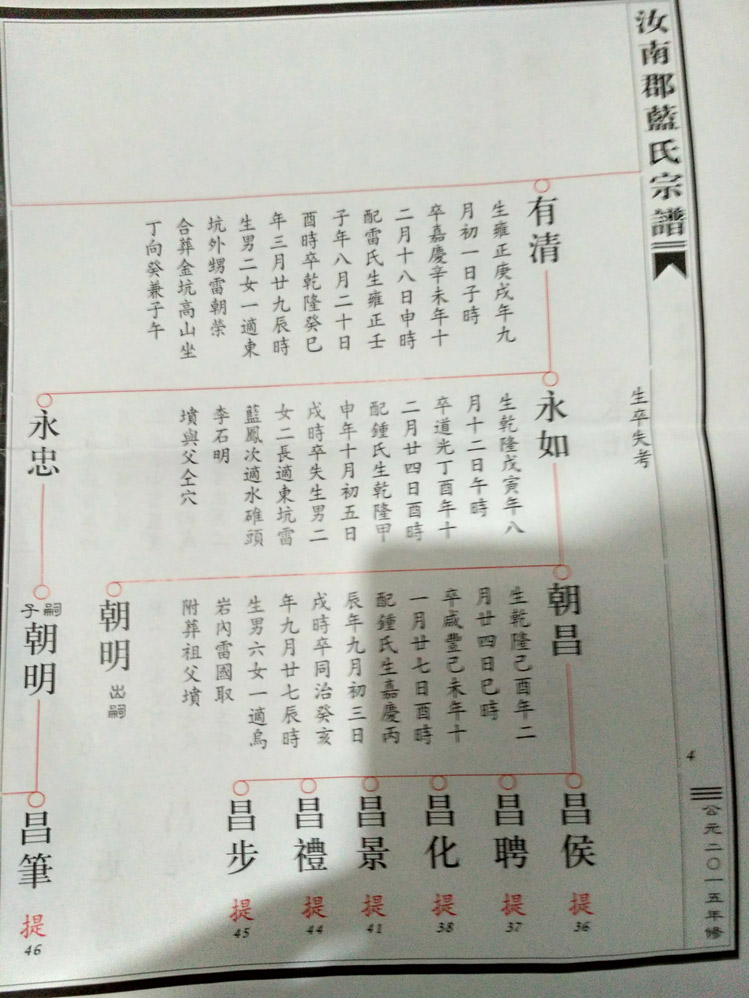 汝南郡藍氏宗譜
生卒失考
4
公元二〇一五年修
有清
生雍正庚戌年九
月初一日子時
卒嘉慶辛未年十
二月十八日申時
配雷氏生雍正壬
子年八月二十日
酉時卒乾隆癸巳
年三月廿九辰時
生男二女一適東
坑外甥雷朝榮
合葬金坑高山坐
丁向癸兼子午
永如
生乾隆戊寅年八
月十二日午時
卒道光丁酉年十
二月廿四日酉時
配鍾氏生乾隆甲
申年十月初五日
戌時卒失生男二
女二長適東坑雷
藍鳳次適水碓頭
李石明
墳與父仝穴
永忠
朝昌
生乾隆己酉年二
月廿四日巳時
卒咸豐己未年十
一月廿七日酉時
配鍾氏生嘉慶丙
辰年九月初三日
戌時卒同治癸亥
年九月廿七辰時
生男六女一適烏
岩內雷國取
附葬祖父墳
朝明 出嗣
嗣子 朝明
昌侯 提 36
昌聘 提 37
昌化 提 38
昌景 提 41
昌禮 提 44
昌步 提 45
昌筆 提 46